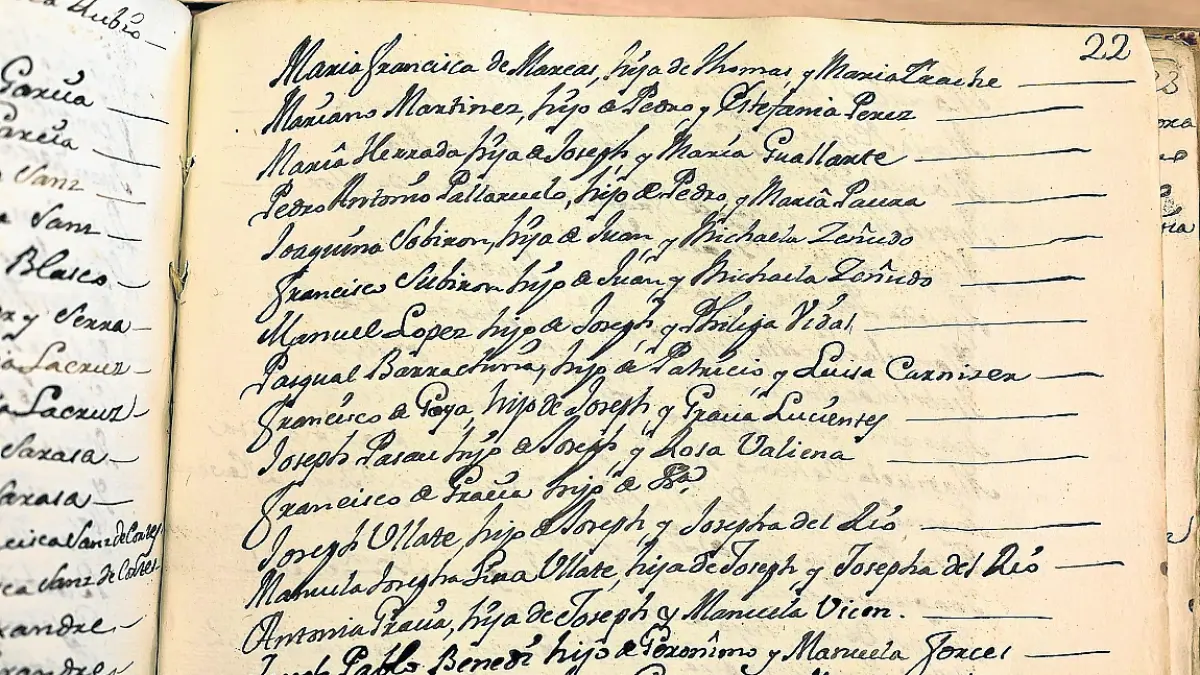 Rubio
22
Garcia
Garcia
Sanz
Sanz
Blasco
y Serra
Lacruz
Lacruz
Sarasa
Sarasa
Sanz de Cortes
Sanz de Cortes
Maria Francisca de Marcas, hija de Thomas y Maria Trache
Mariano Martinez, hijo de Pedro y Estefania Perez
Maria Herrada hija de Joseph y Maria Guallarte
Pedro Antonio Pallaruelo, hijo de Pedro y Maria Paura
Joaquina Sobiron, hija de Juan y Michaela Zeñudo
Francisco Subiron hijo de Juan y Michaela Zeñudo
Manuel Lopez hijo de Joseph y Phelipa Vidal
Pasqual Barrachina, hijo de Patricio y Luisa Carnizer
Francisco de Goya, hijo de Joseph y Gracia Lucientes
Joseph Pasau hijo de Joseph y Rosa Valiena
Francisco de Gracia hijo de
Joseph Ullate, hijo de Joseph y Josepha del Rio
Manuela Josepha Lina Ullate, hija de Joseph y Josepha del Rio
Antonia Gracia, hija de Joseph y Manuela Vicen.
Pablo Benedi hijo de Geronimo y Manuela Forces